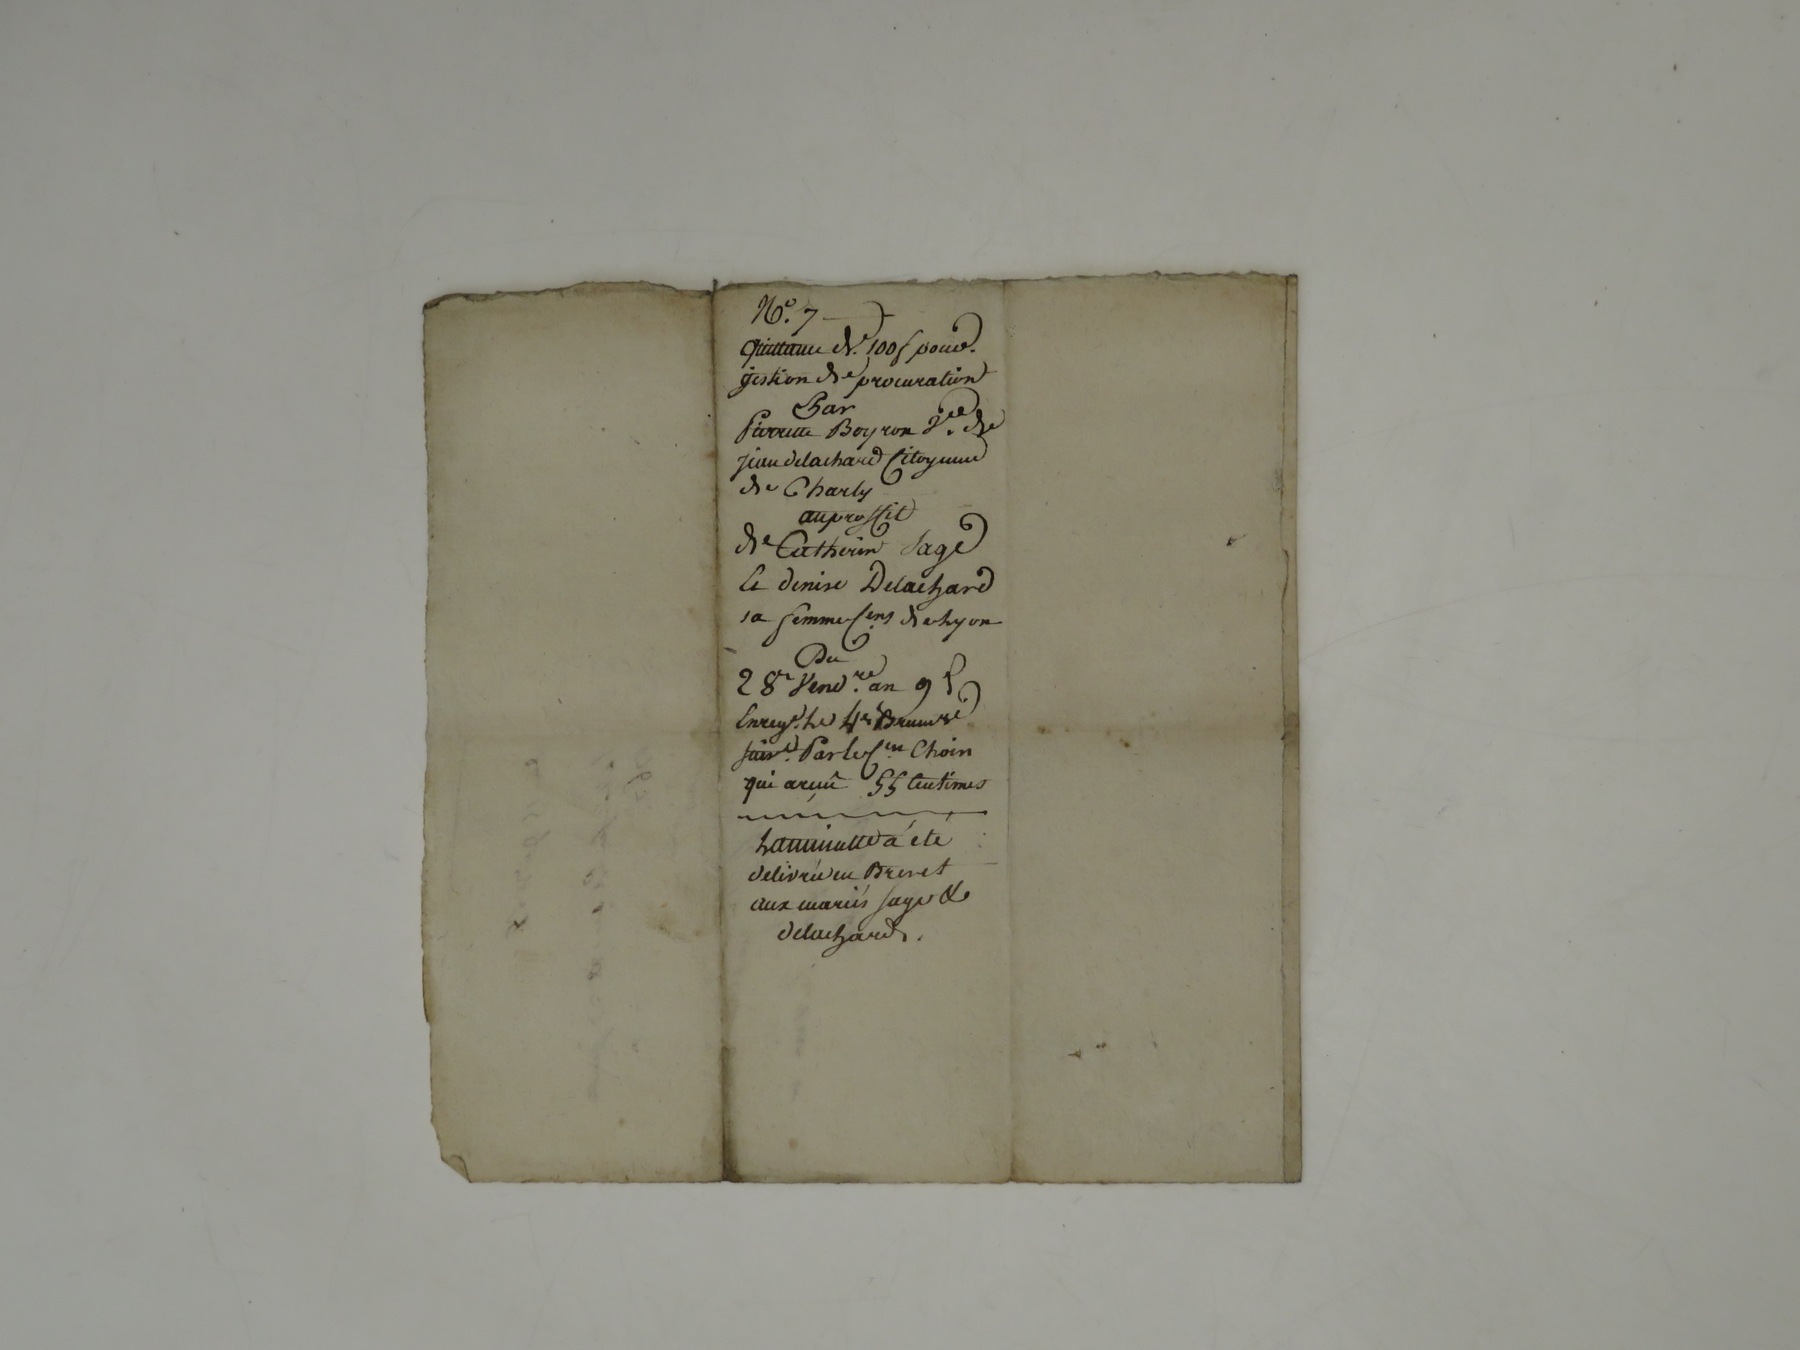 N.º 7
quittance de 100 f pour
gestion de procuration
Par
Pierrette Boyron V.ve de
jean delachard Citoyenne
de Charly
au proffit
de Catherin Sage
et denise Delachard
sa femme C.ens de Lyon
Du
28 Vend.re an 9
Enreg.é Le 4 Brum.re
suiv.t Par le C.en Choin
qui a reçu 55 Centimes
La minutte a été
delivrée en Brevet
aux mariés Sage &
delachard.